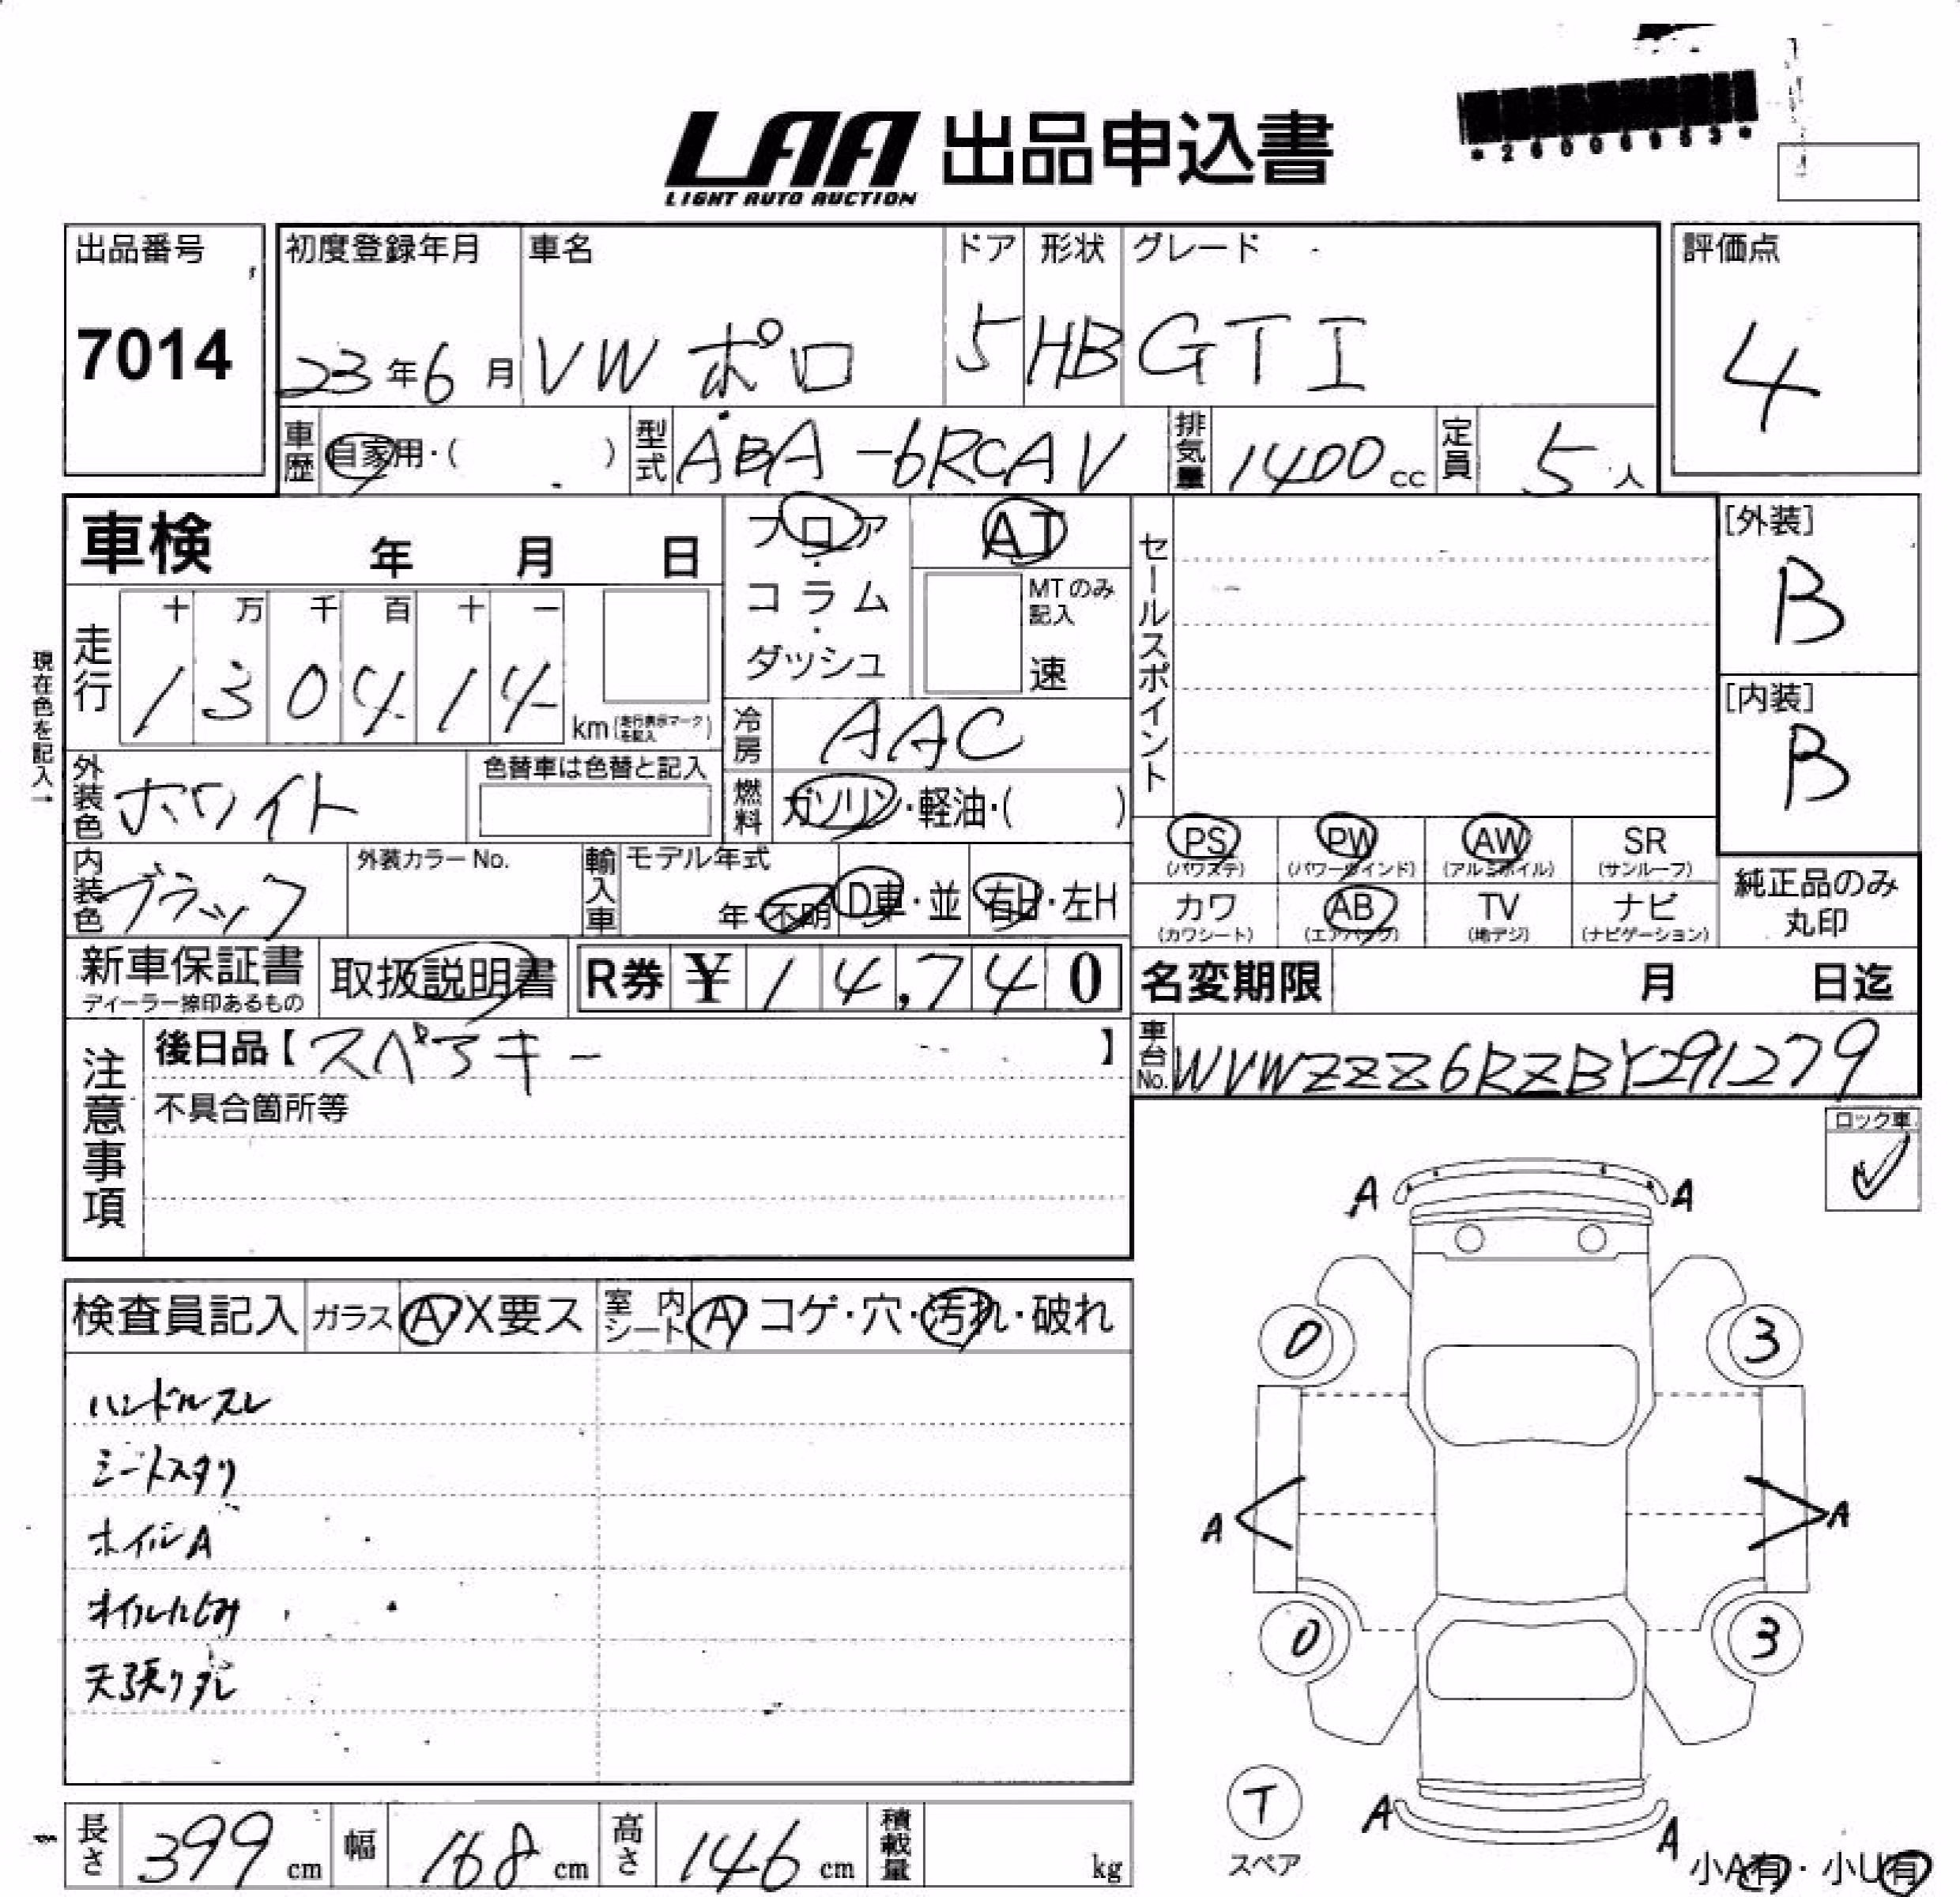 *26006953*
LAA 出品申込書
LIGHT AUTO AUCTION
出品番号 初度登録年月 車名 ドア 形状 グレード 評価点
7014 23年6月 VW ポロ 5 HB GTI 4
車歴 自家用・( ) 型式 ABA-6RCAV 排気量 1400cc 定員 5人
車検 年 月 日 フロア・コラム・ダッシュ AT セールスポイント [外装]
B
MTのみ記入
速
現在色を記入→
走行 十 万 千 百 十 一
1 3 0 4 1 4 km(走行表示マークを記入)
[内装]
B
冷房 AAC
外装色 ホワイト 色替車は色替と記入 燃料 ガソリン・軽油・( )
PS PW AW SR
(パワステ) (パワーウインド) (アルミホイル) (サンルーフ)
内装色 ブラック 外装カラーNo. 輸入車 モデル年式 年・不明 D車・並 右H・左H
カワ AB TV ナビ
(カワシート) (エアバック) (地デジ) (ナビゲーション)
純正品のみ
丸印
新車保証書 取扱説明書 R券 ¥14,740 名変期限 月 日迄
ディーラー捺印あるもの
注意事項 後日品【スペアキー 】 車台No. WVWZZZ6RZBY291279
不具合箇所等
ロック車
✓
A A
検査員記入 ガラス A X要ス 室内シート A コゲ・穴・汚れ・破れ
0 3
ハンドルスレ
シートスタリ
A A
ホイルA
オイルにじみ
0 3
天張りタレ
T
スペア
A A
長さ 399cm 幅 168cm 高さ 146cm 積載量 kg
小A有・小U有